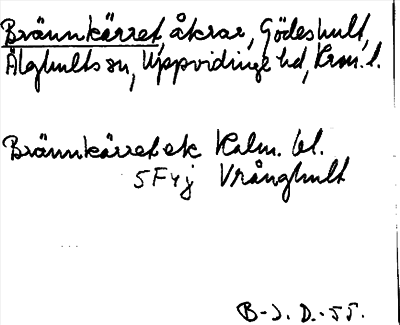 Brännkärret, åkrar, Gödeshult,
Älghults sn, Uppvidinge hd, Kron. l.
Brännkärret ek Kalm. bl.
5F4j Vrånghult
B-J. D.-55.